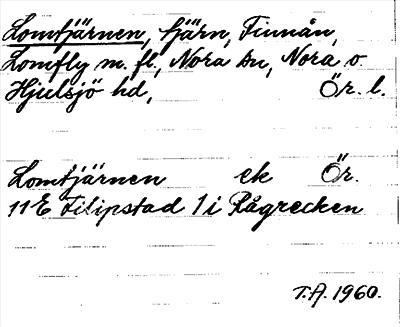 Lomtjärnen, tjärn, Finnån,
Lomfly m. fl., Nora sn, Nora o.
Hjulsjö hd, Ör. l.
Lomtjärnen ek Ör.
11E Filipstad 1 i Rågrecken
T.A. 1960.